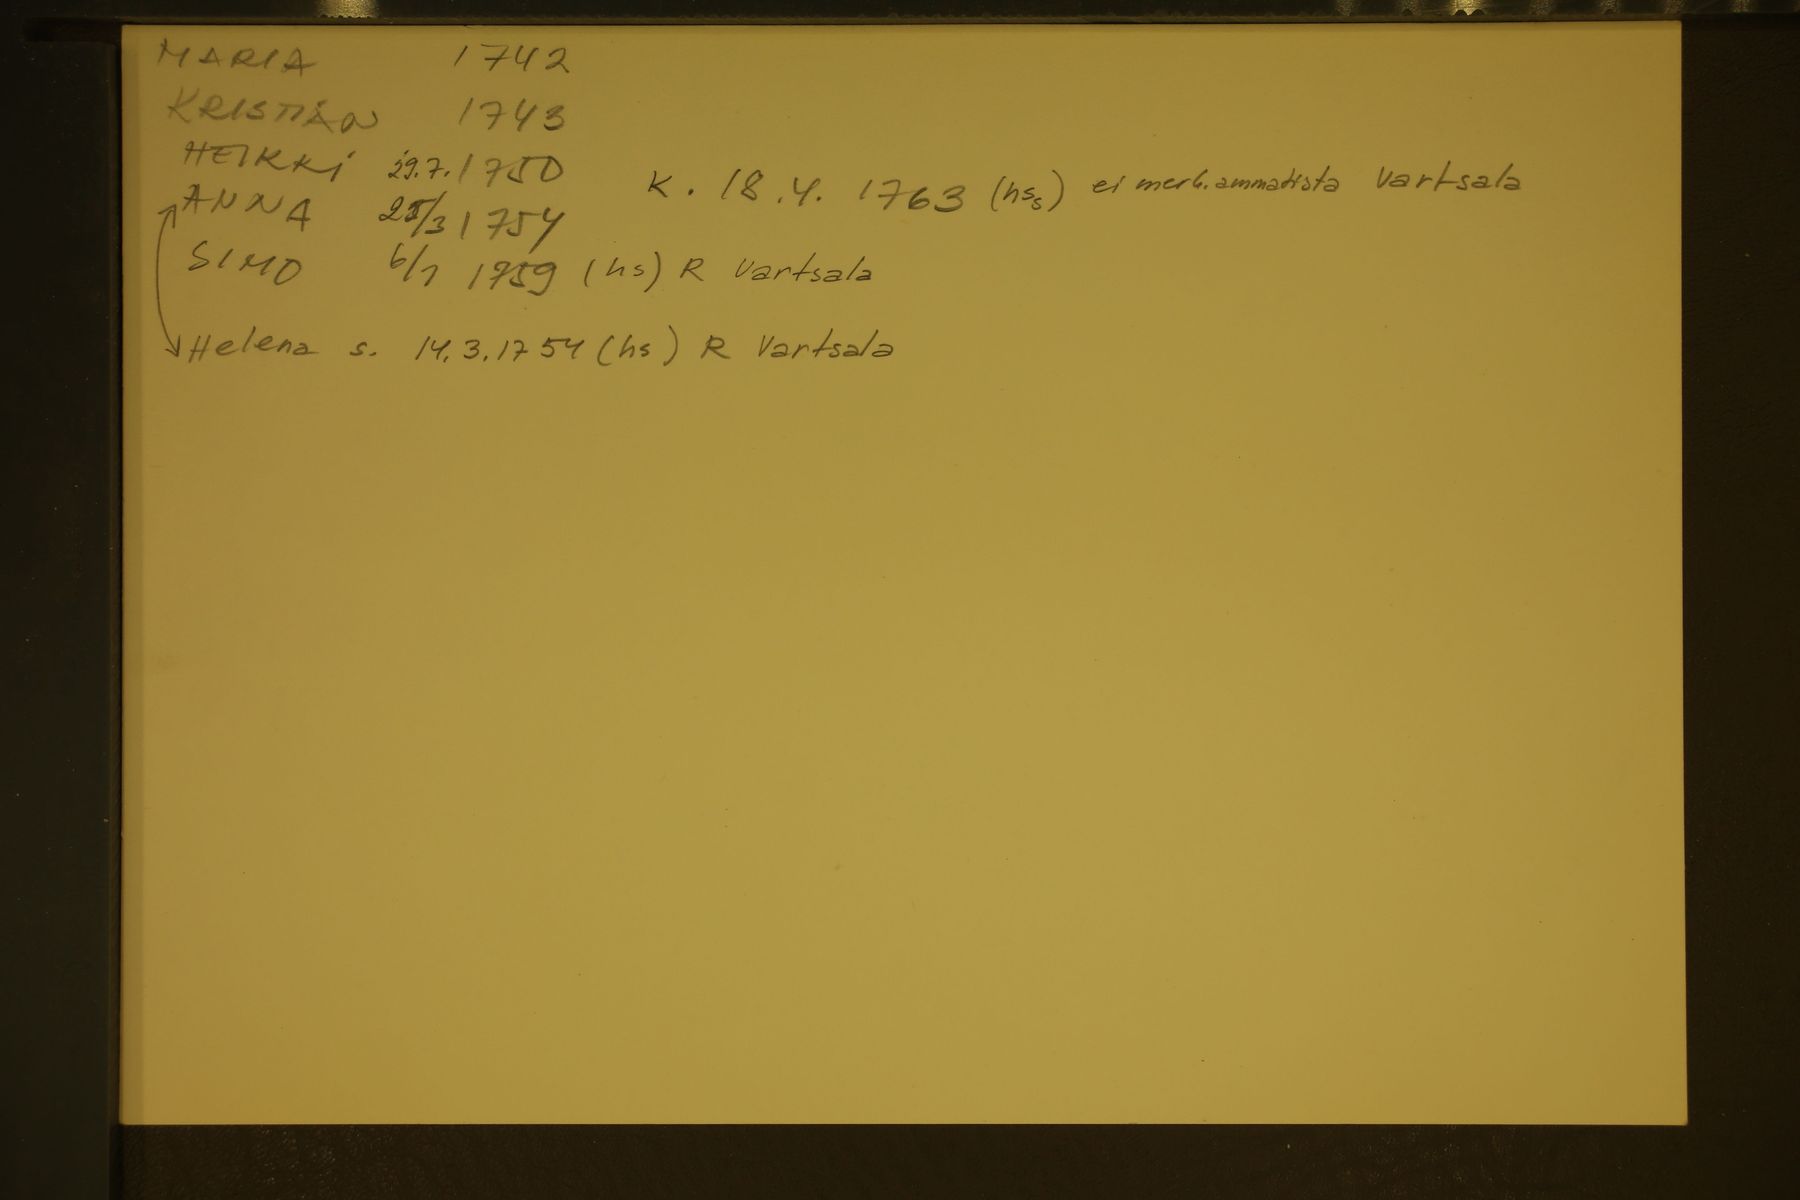 MARIA 1742
KRISTIAN 1743
HEIKKI 29.7.1750 K. 18.4. 1763 (hss) ei merk. ammatista Vartsala
ANNA 25/3 1754
SIMO 6/1 1759 (hs) R Vartsala
Helena s. 14.3.1754 (hs) R Vartsala